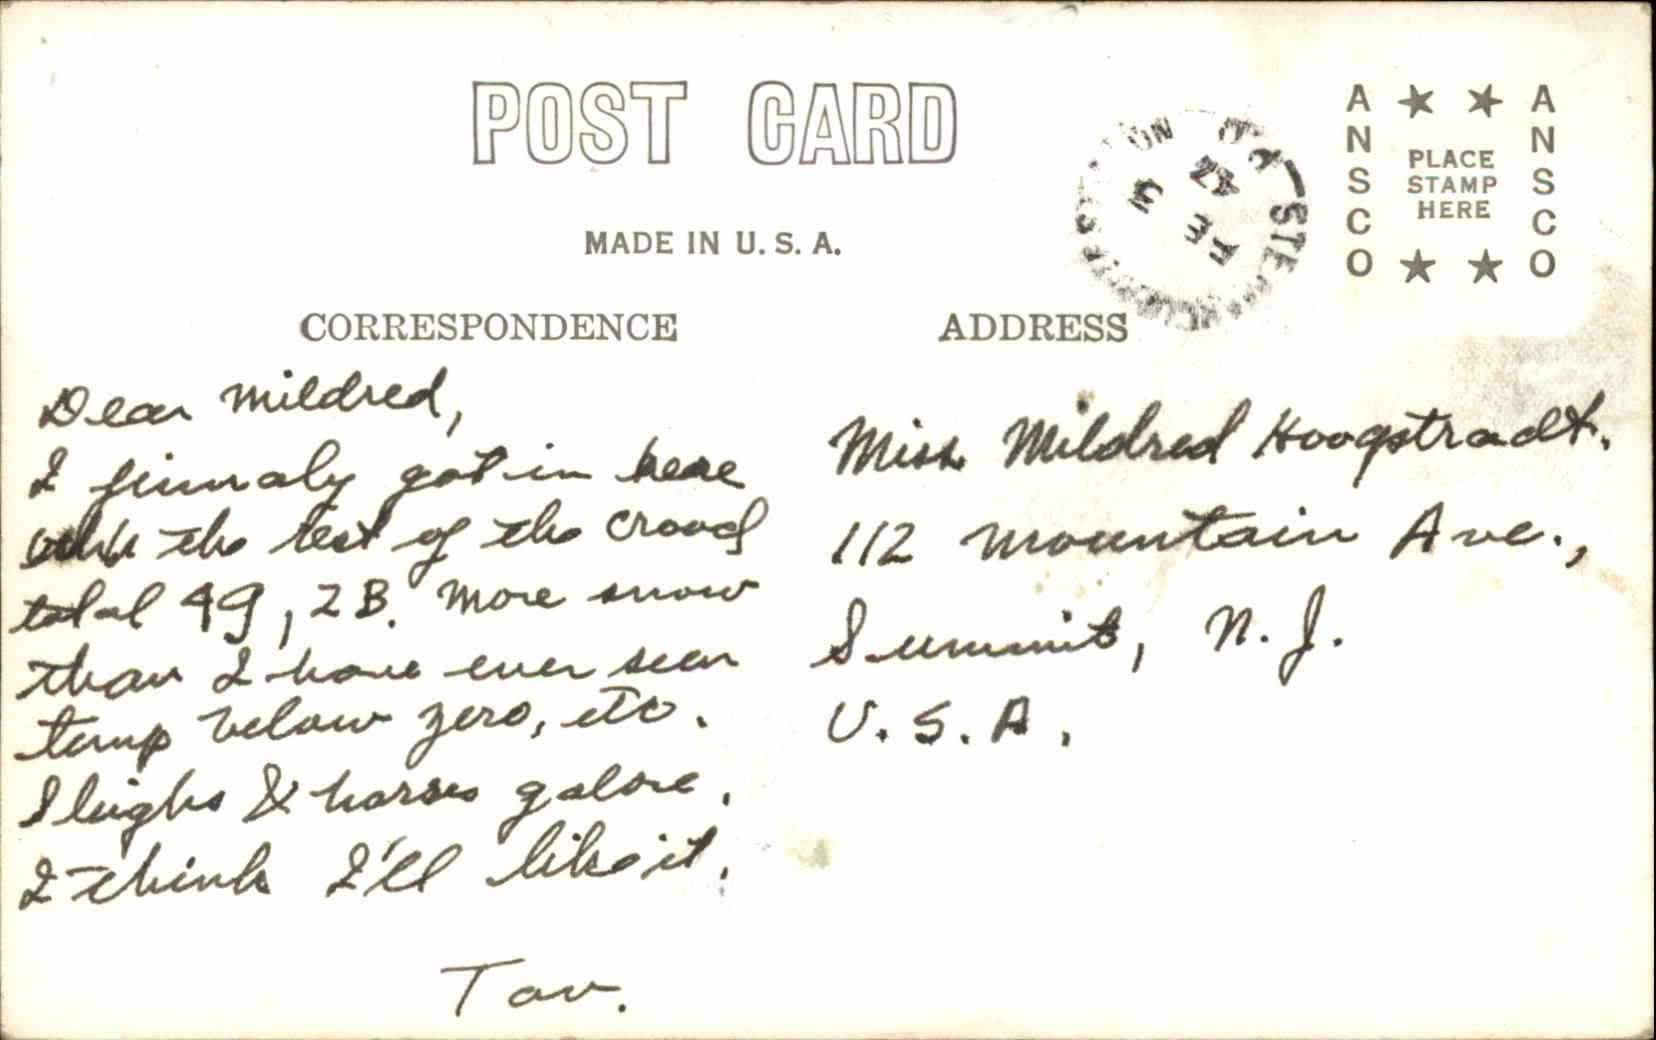 POST CARD
MADE IN U.S.A.
CORRESPONDENCE
ADDRESS
A ★ ★ A
N N
S PLACE STAMP HERE S
C C
O ★ ★ O
FE 3
47
STE
Dear Mildred,
I finnaly got in here
with the rest of the crowd
total 49, 2B. More snow
than I have ever seen
temp below zero, etc.
Sleighs & horses galore.
I think I'll like it.
Tav.
Miss Mildred Hoogstradt.
112 Mountain Ave.,
Summit, N.J.
U.S.A.